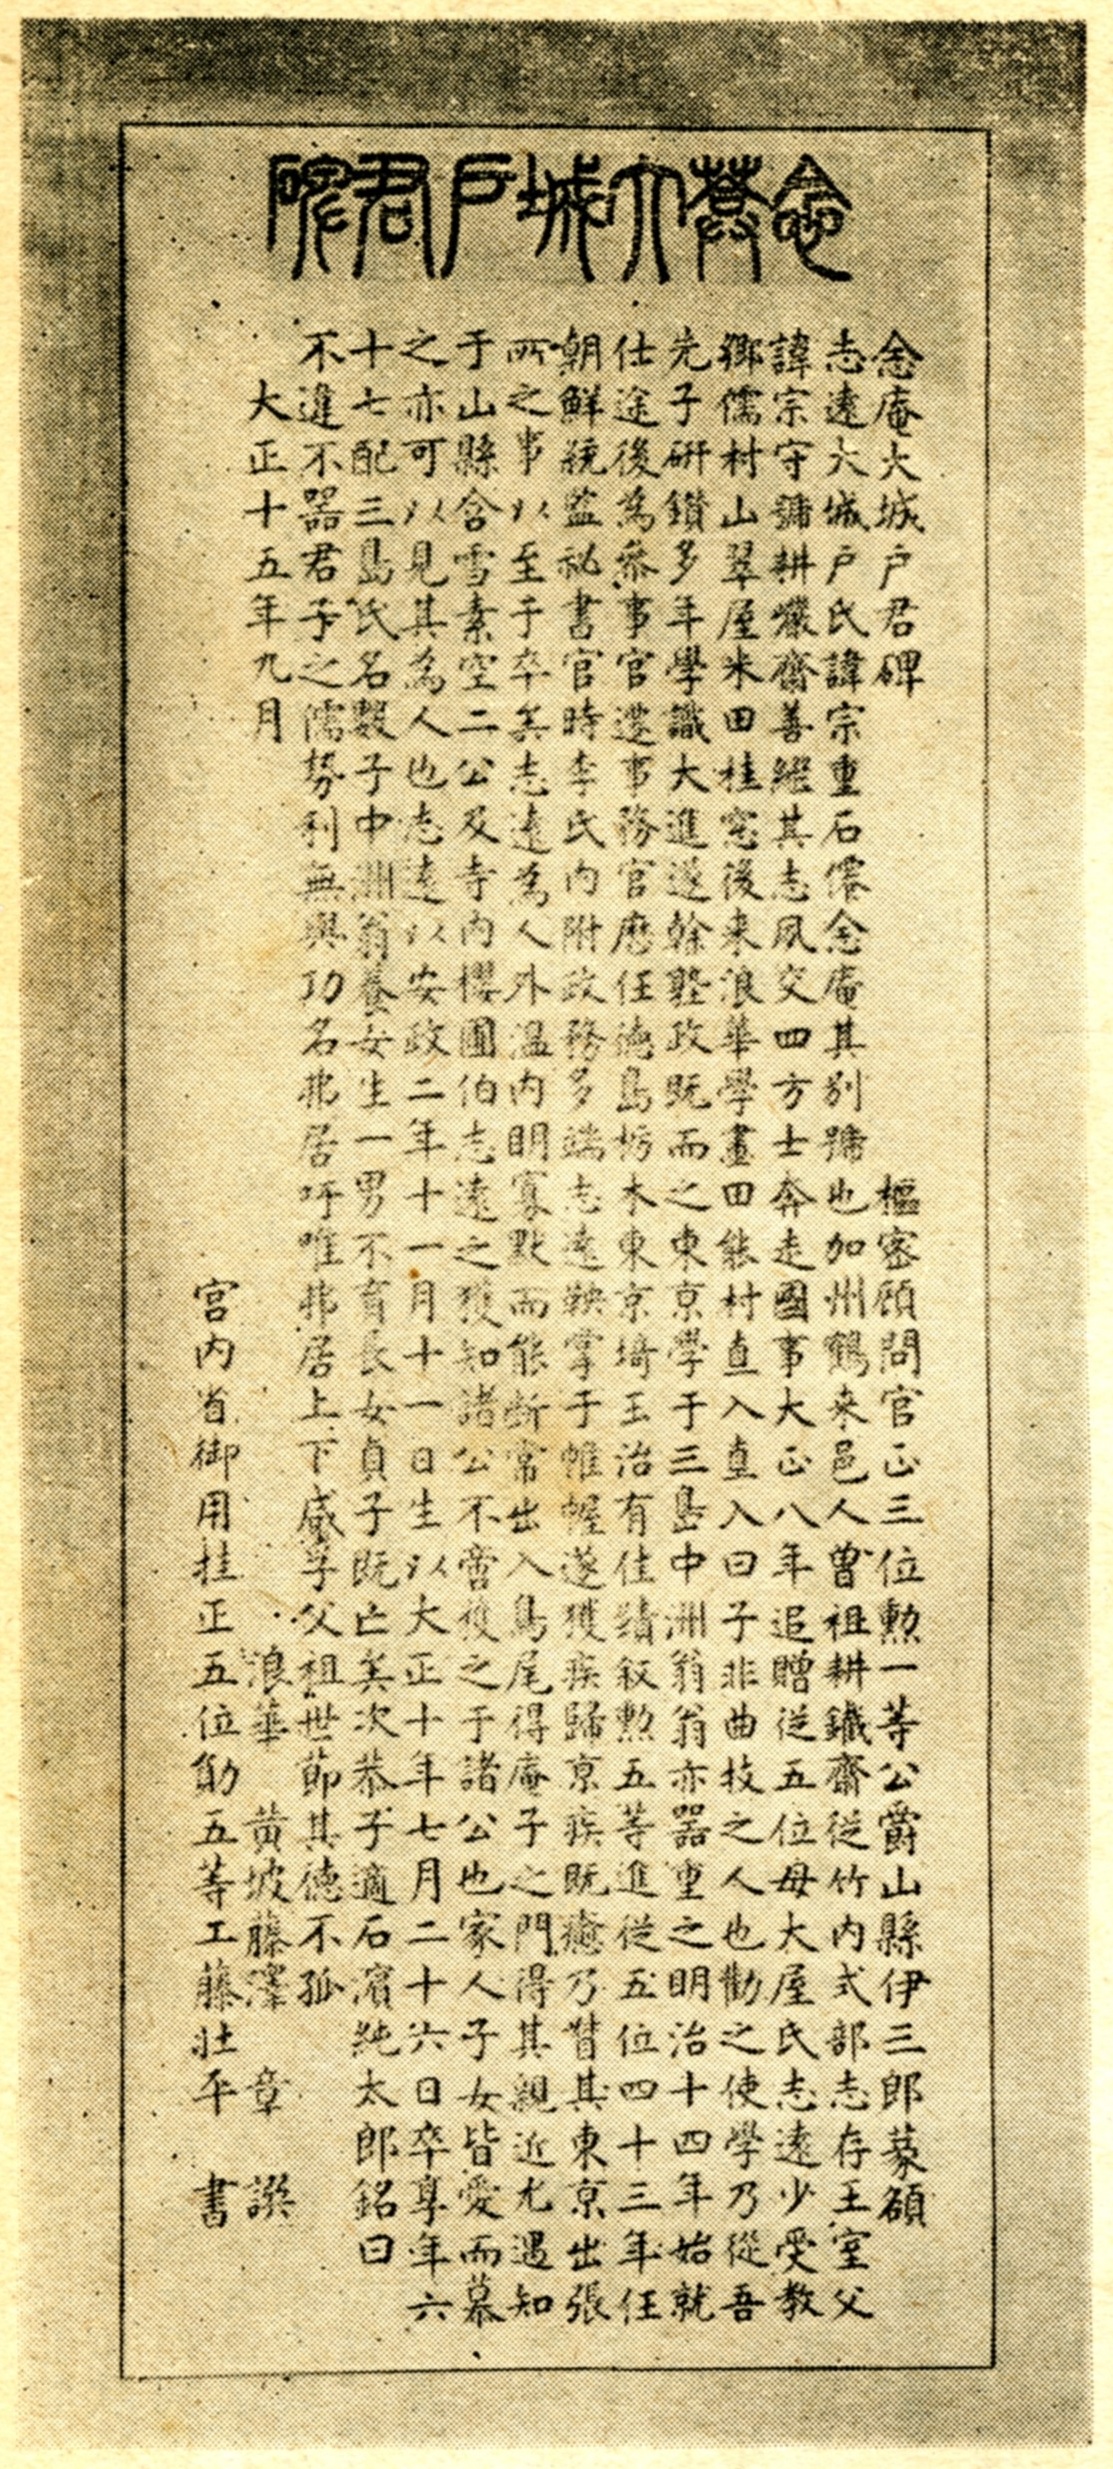 念菴大城戸君碑
念庵大城戸君碑　樞密顧問官正三位勲一等公爵山縣伊三郎篆額
志遠大城戸氏諱宗重石僊念庵其別號也加州鶴来邑人曽祖耕鐵齋従竹内式部志存王室父
諱宗守號耕癡齋善継其志夙交四方士奔走國事大正八年追贈従五位母大屋氏志遠少受教
郷儒村山翠屋米田桂窓後来浪華學畫田能村直入直入曰子非曲技之人也勸之使學乃從吾
先子研鑚多年學識大進遂餘姚政既而之東京学于三島中洲翁翁亦器重之明治十四年始就
仕途後為参事官遷事務官歴任徳島栃木東京埼玉治有佳績叙勲五等進従五位四十三年任
朝鮮統監祕書官時李氏内附政務多端志遠鞅掌于帷幄遂獲疾歸京疾既癒乃督其東京出張
所之事以至于卒矣志遠為人外温内明寡黙而能断常出入鳥尾得庵子之門得其親近尤遇知
于山縣含雪素空二公及寺内櫻圃伯志遠之獲知諸公不啻獲之于諸公也家人子女皆愛而慕
之亦可以見其為人也志遠以安政二年十一月十一日生以大正十年七月二十六日卒享年六
十七配三島氏名數子中洲翁養女生一男不育長女貞子既亡矣次恭子適石濱純太郎銘曰
不進不器君子之儒勢利無與功名弗居吁唯弗居上下咸孚父祖世節其徳不孤
大正十五年九月
浪華　黄坡藤澤　章　譔
宮内省御用挂正五位勛五等工藤壮平　書